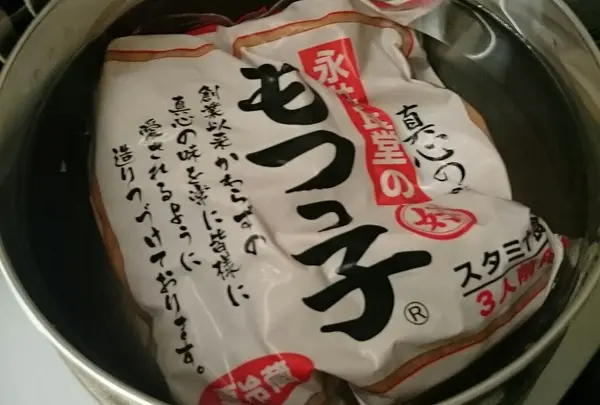 真心の
永井食堂の
もつっ子®
創業以来かわらずの
真心の味を常に皆様に
愛されるように
造りつづけております。
スタミナ
3人前
冷蔵